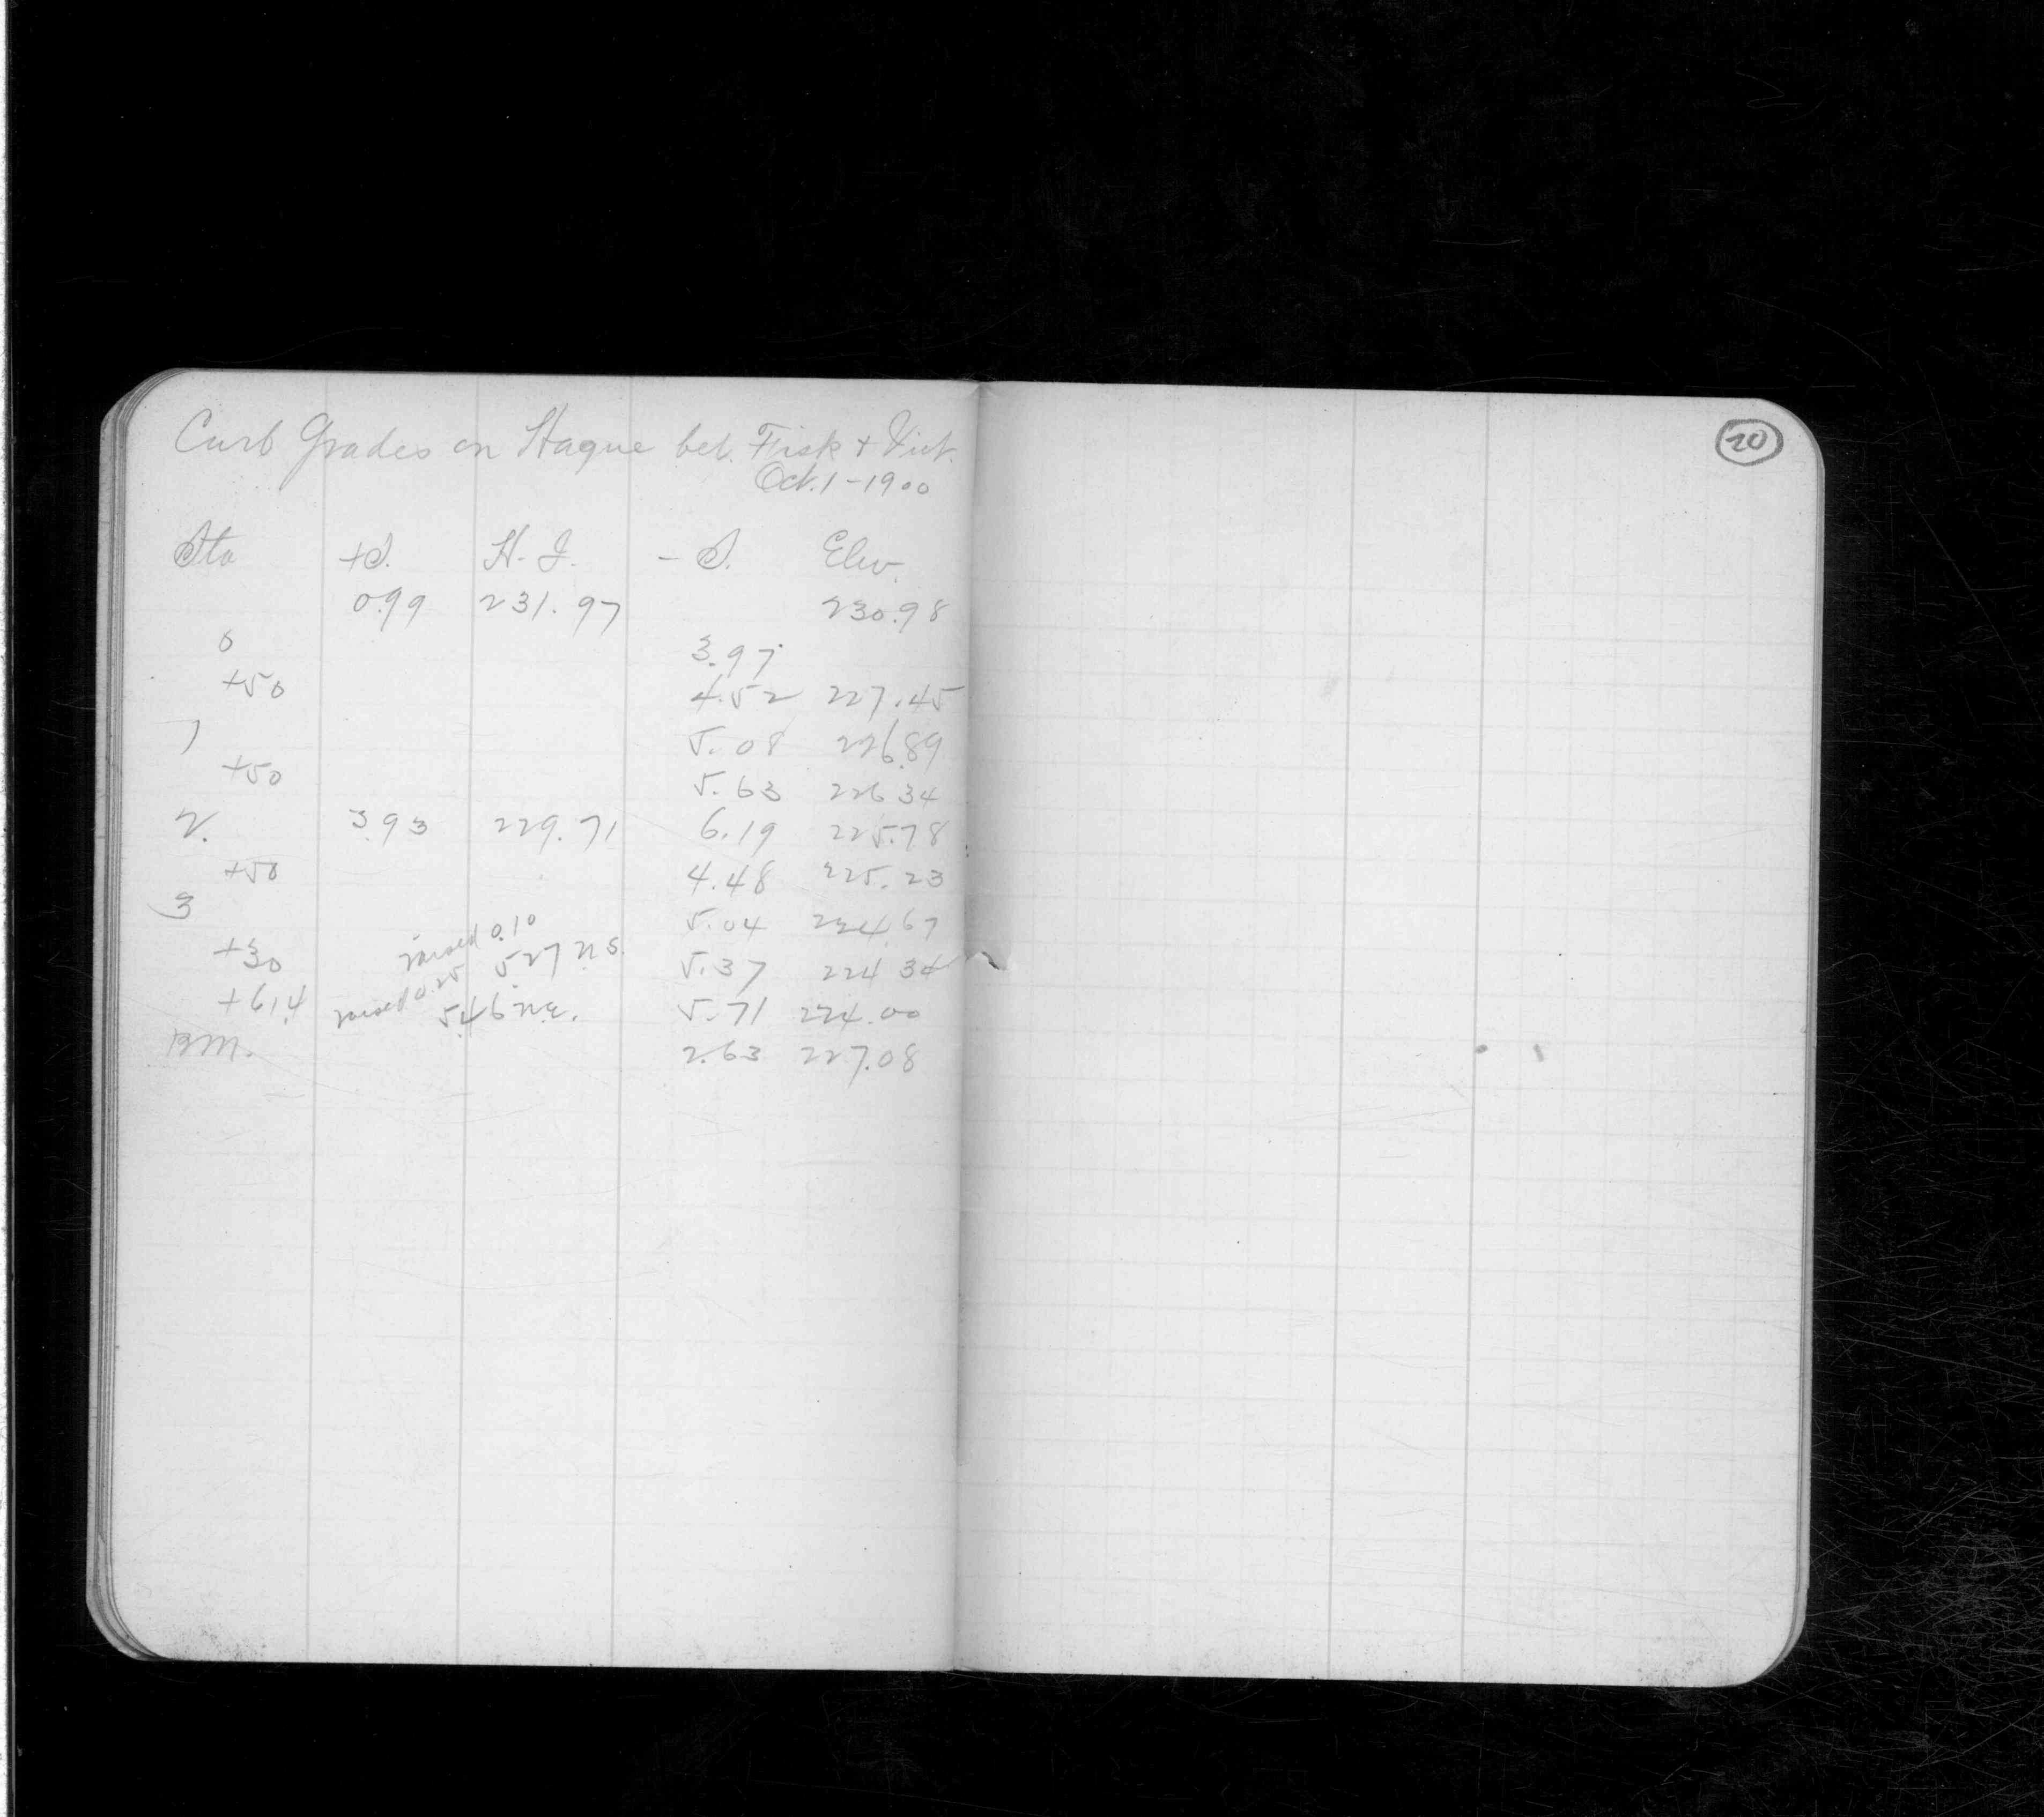 Curb Grades on Hague bet. Fisk + Vict.
Oct. 1-1900
Sta +S. H.I. -S. Elev.
0.99 231.97 230.98
0 3.97
+50 4.52 227.45
1 5.08 226.89
+50 5.63 226.34
2. 3.93 229.71 6.19 225.78
+50 4.48 225.23
3 5.04 224.67
+30 raised 0.10 5.27 N.S. 5.37 224.34
+61.4 raised 0.25 5.46 N.E. 5.71 224.00
B.M. 2.63 227.08
20